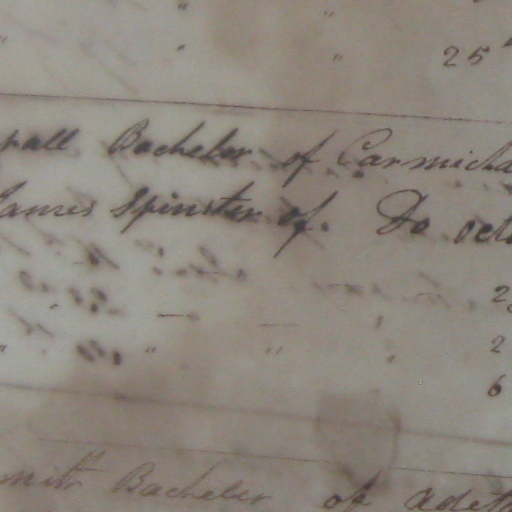 " " 25
rall Bachelor of Carmicha
James Spinster of. Do octo
2
" " " " 2
6
mith Bachelor of adel